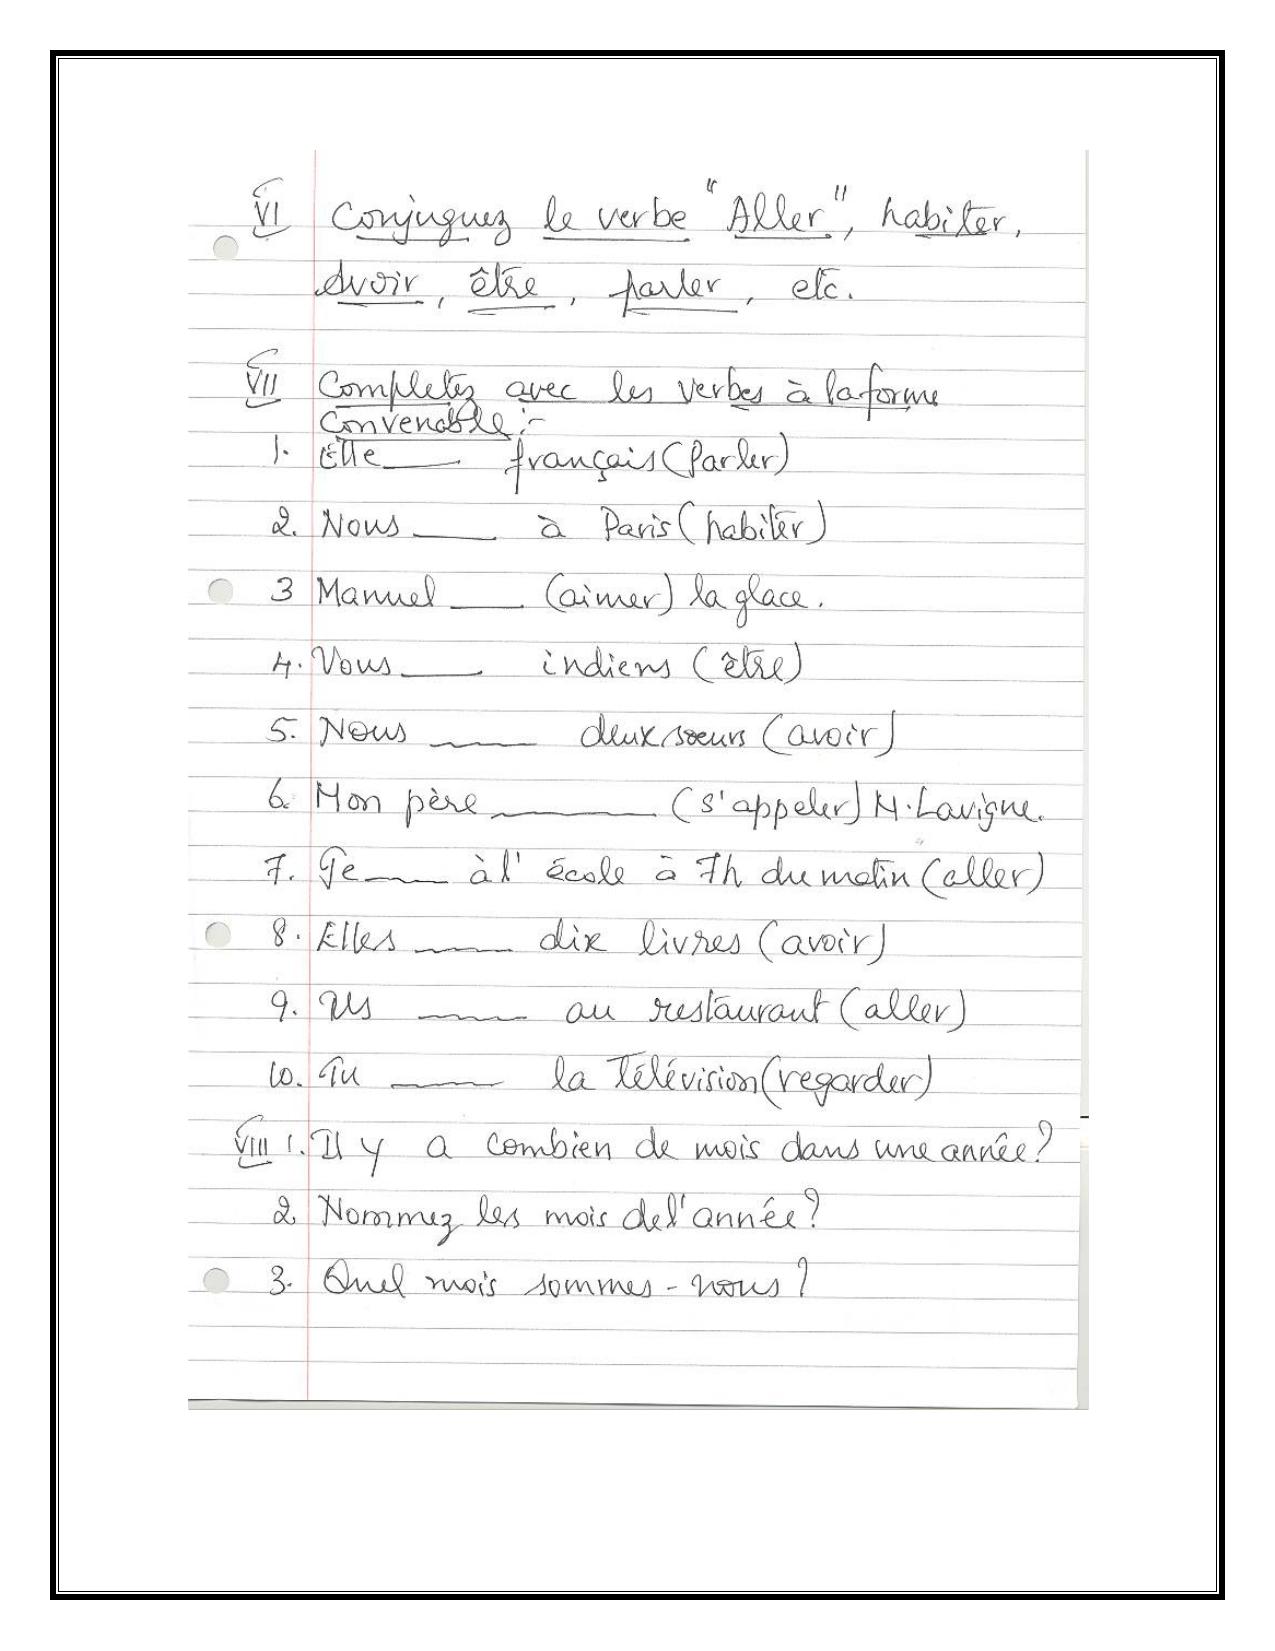 VI Conjuguez le verbe "Aller", habiter,
Avoir, être, parler, etc.
VII Completez avec les verbes à la forme
Convenable :-
1. Elle____ français (Parler)
2. Nous ____ à Paris (habiter)
3 Manuel ____ (aimer) la glace.
4. Vous ____ indiens (être)
5. Nous ____ deux sœurs (avoir)
6. Mon père ____ (s'appeler) M. Lavigne.
7. Je ____ à l'école à 7h du matin (aller)
8. Elles ____ dix livres (avoir)
9. Ils ____ au restaurant (aller)
10. Tu ____ la Télévision (regarder)
VIII 1. Il y a combien de mois dans une année?
2. Nommez les mois de l'année?
3. Quel mois sommes-nous?